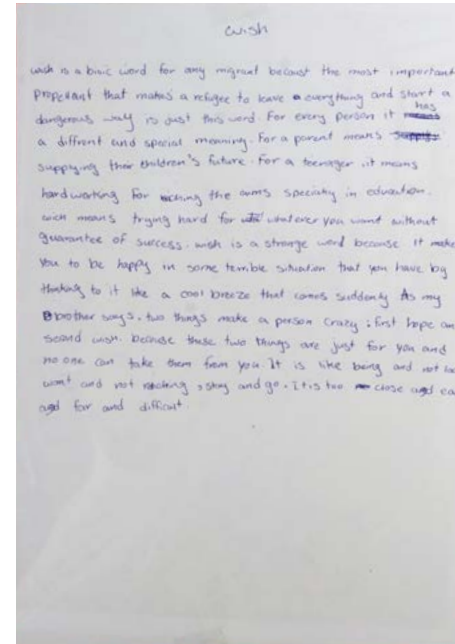 wish
wish is a basic word for any migrant becaust the most important
propellant that makes a refugee to leave everything and start a
dangerous way is just this word. For every person it has
a diffrent and special meaning. For a parent means
supplying their children's future. For a teenager, it means
hardworking for the aims specialy in education.
wish means trying hard for whatever you want without
guarantee of success. wish is a strange word because it make
you to be happy in some terrible situation that you have by
thinking to it like a cool breeze that comes suddenly As my
brother says, two things make a person crazy; first hope an
second wish. because these two things are just for you and
no one can take them from you. It is like being and not
want and not reaching, stay and go. It is too close and
and far and difficult.